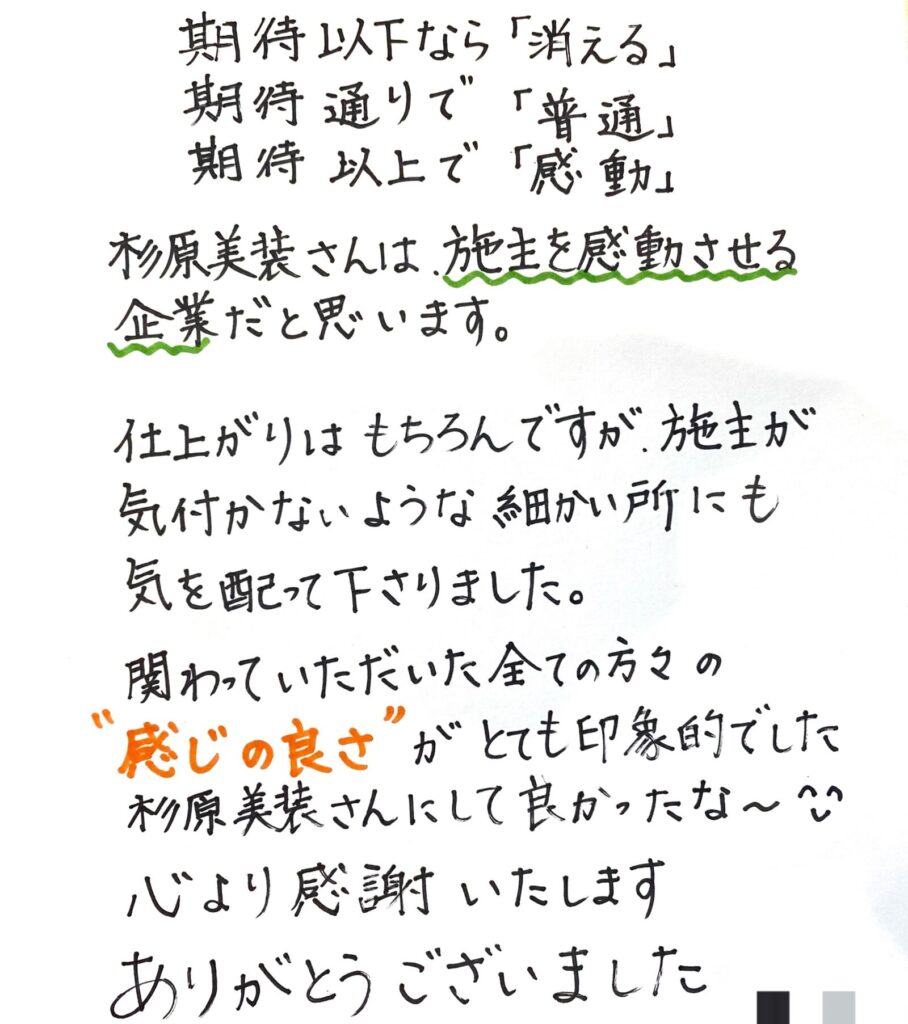 期待以下なら「消える」
期待通りで「普通」
期待以上で「感動」
杉原美装さんは、施主を感動させる
企業だと思います。
仕上がりはもちろんですが、施主が
気付かないような細かい所にも
気を配って下さりました。
関わっていただいた全ての方々の
“感じの良さ”がとても印象的でした
杉原美装さんにして良かったな〜^^
心より感謝いたします
ありがとうございました